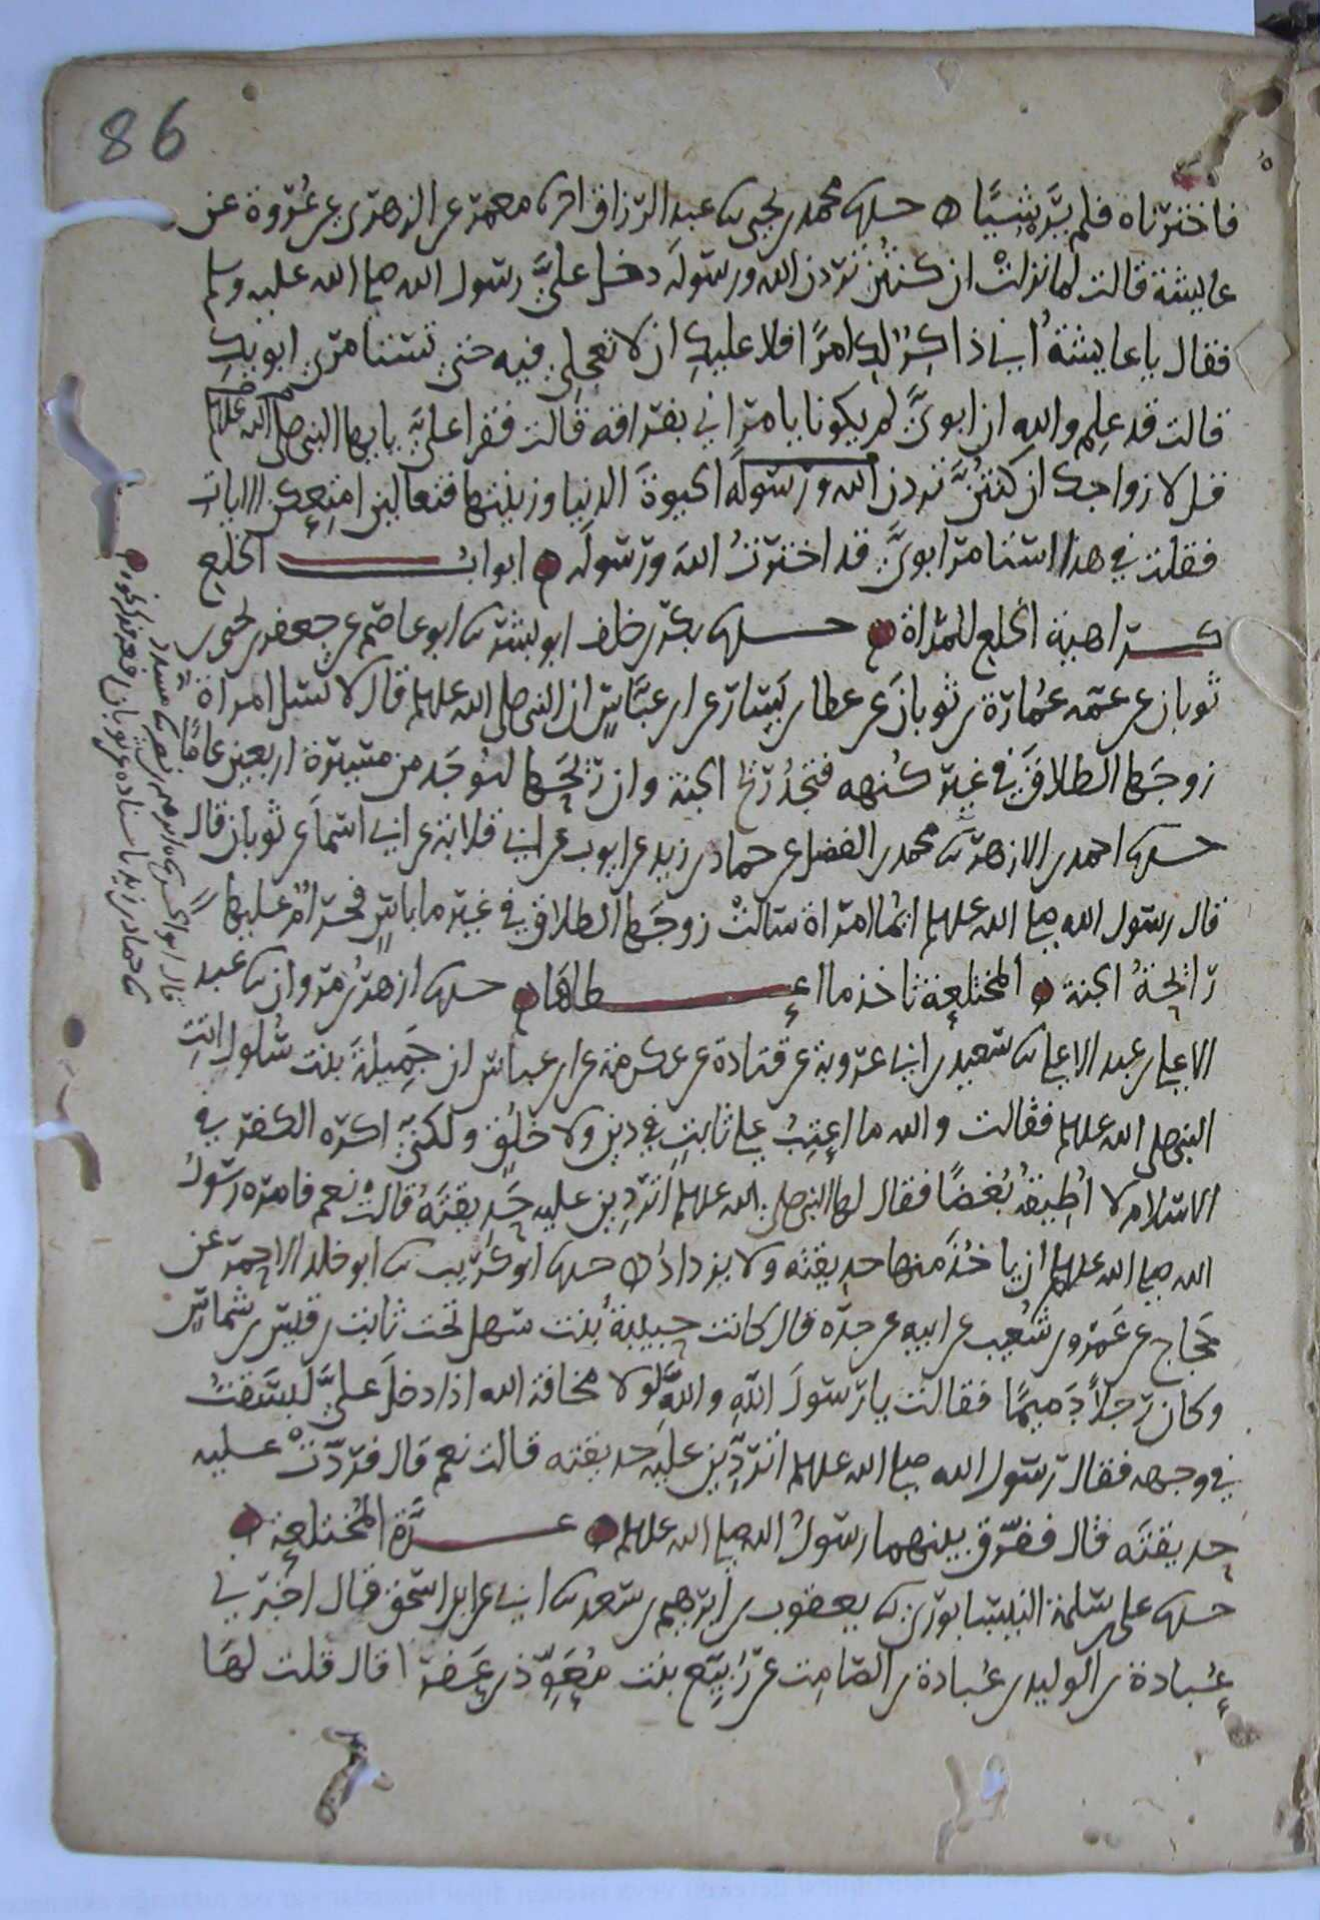 86
فاخترناه فلم يَرَه شيئًا ه حدثنا محمد بن يحيى ثنا عبد الرزاق انا معمر عن الزهري عن عُروة عن
عايشة قالت لما نزلتْ ان كنتُن تردن الله ورسولَه دخل عليَّ رسول الله صلى الله عليه وسلم
فقال يا عايشةُ اني ذاكِرٌ لكِ امرًا فلا عليكِ ان لا تعجلي فيه حتى تستامري ابويكِ
قالت قد علِم والله ان ابويَّ لم يكونا يامراني بفراقه قالت فقرا عليَّ يايها النبي صلى الله عليه وسلم
قل لازواجك ان كنتُنَّ تردن الله ورسوله الحيوةَ الدنيا وزينتها فتعالين امتعكن الايات
فقلت في هذا استامر ابويَّ قد اخترتُ اللهَ ورسولَه ه ابوابُ الخلع
كراهية الخلع للمراة ه حدثنا بكر بن خلف ابو بشر ثنا ابو عاصم عن جعفر بن يحيى بن
ثوبان عن عمّه عُمارة بن ثوبان عن عطا بن يَسَار عن ابن عبَّاسٍ ان النبي صلى الله عليه وسلم قال لا تسئل امراة
زوجَها الطلاقَ في غير كُنهه فتجدُ ريح الجنة وان ريحَها لتوجَد من مسيرة اربعين عامًا
حدثنا احمد بن الازهر ثنا محمد بن الفضل عن حماد بن زيد عن ايوب عن ابي قلابة عن ابي اسماَ عن ثوبان قال
قال رسول الله صلى الله عليه وسلم ايُّما امراة سالتْ زوجَها الطلاق في غير ما باسٍ فحرامٌ عليها
رائحةُ الجنة ه المختلعة تاخذ ما اعطاها ه حدثنا ازهرُ بن مروان ثنا عبد
الاعلى بن عبد الاعلى ثنا سعيد بن ابي عروبة عن قتادة عن عكرمة عن ابن عباس ان جَمِيلَةَ بنت سَلول اتتِ
النبي صلى الله عليه وسلم فقالت والله ما اعتِبُ على ثابتٍ في دينٍ ولا خلُقٍ ولكنّي اكره الكفر في
الاسلام لا اُطِيقُه بُغضًا فقال لها النبي صلى الله عليه وسلم اتردّين عليه حَديقتَهُ قالتْ نعم فامره رسولُ
الله صلى الله عليه وسلم ان ياخُذَ منها حديقته ولا يزداد ه حدثنا ابو كُريب ثنا ابو خالد الاحمر عن
حَجاج عن عَمرو بن شُعيب عن ابيه عن جدّه قال كانت حبيبةُ بنت سهل تحت ثابت بن قيس بن شماسٍ
وكان رجلاً دَميمًا فقالت يا رسولَ اللهِ واللهِ لولا مخافة الله اذا دخلَ عليَّ لبسَقتُ
في وجهه فقال رسول الله صلى الله عليه وسلم اتردّين عليه حديقته قالت نعم قال فردّتْ عليه
حديقتَه قال ففرّق بينهما رسولُ الله صلى الله عليه وسلم ه عِدَّة المُختلعة ه
حدثنا علي بن سلمة النيسابوري ثنا يعقوب بن ابرهيم بن سعد ثنا ابي عن ابن اسحق قال اخبرني
عُبادة بن الوليد بن عُبادة بن الصّامِت عن رُبيّع بنت مُعوّذ بن عَفرا قال قلت لها
ه قال ابو الحسن ثنا ابرهيم بن نصر ثنا مسدد
ثنا حماد بن زيد باسناده عن ثوبان فذكر نحوه